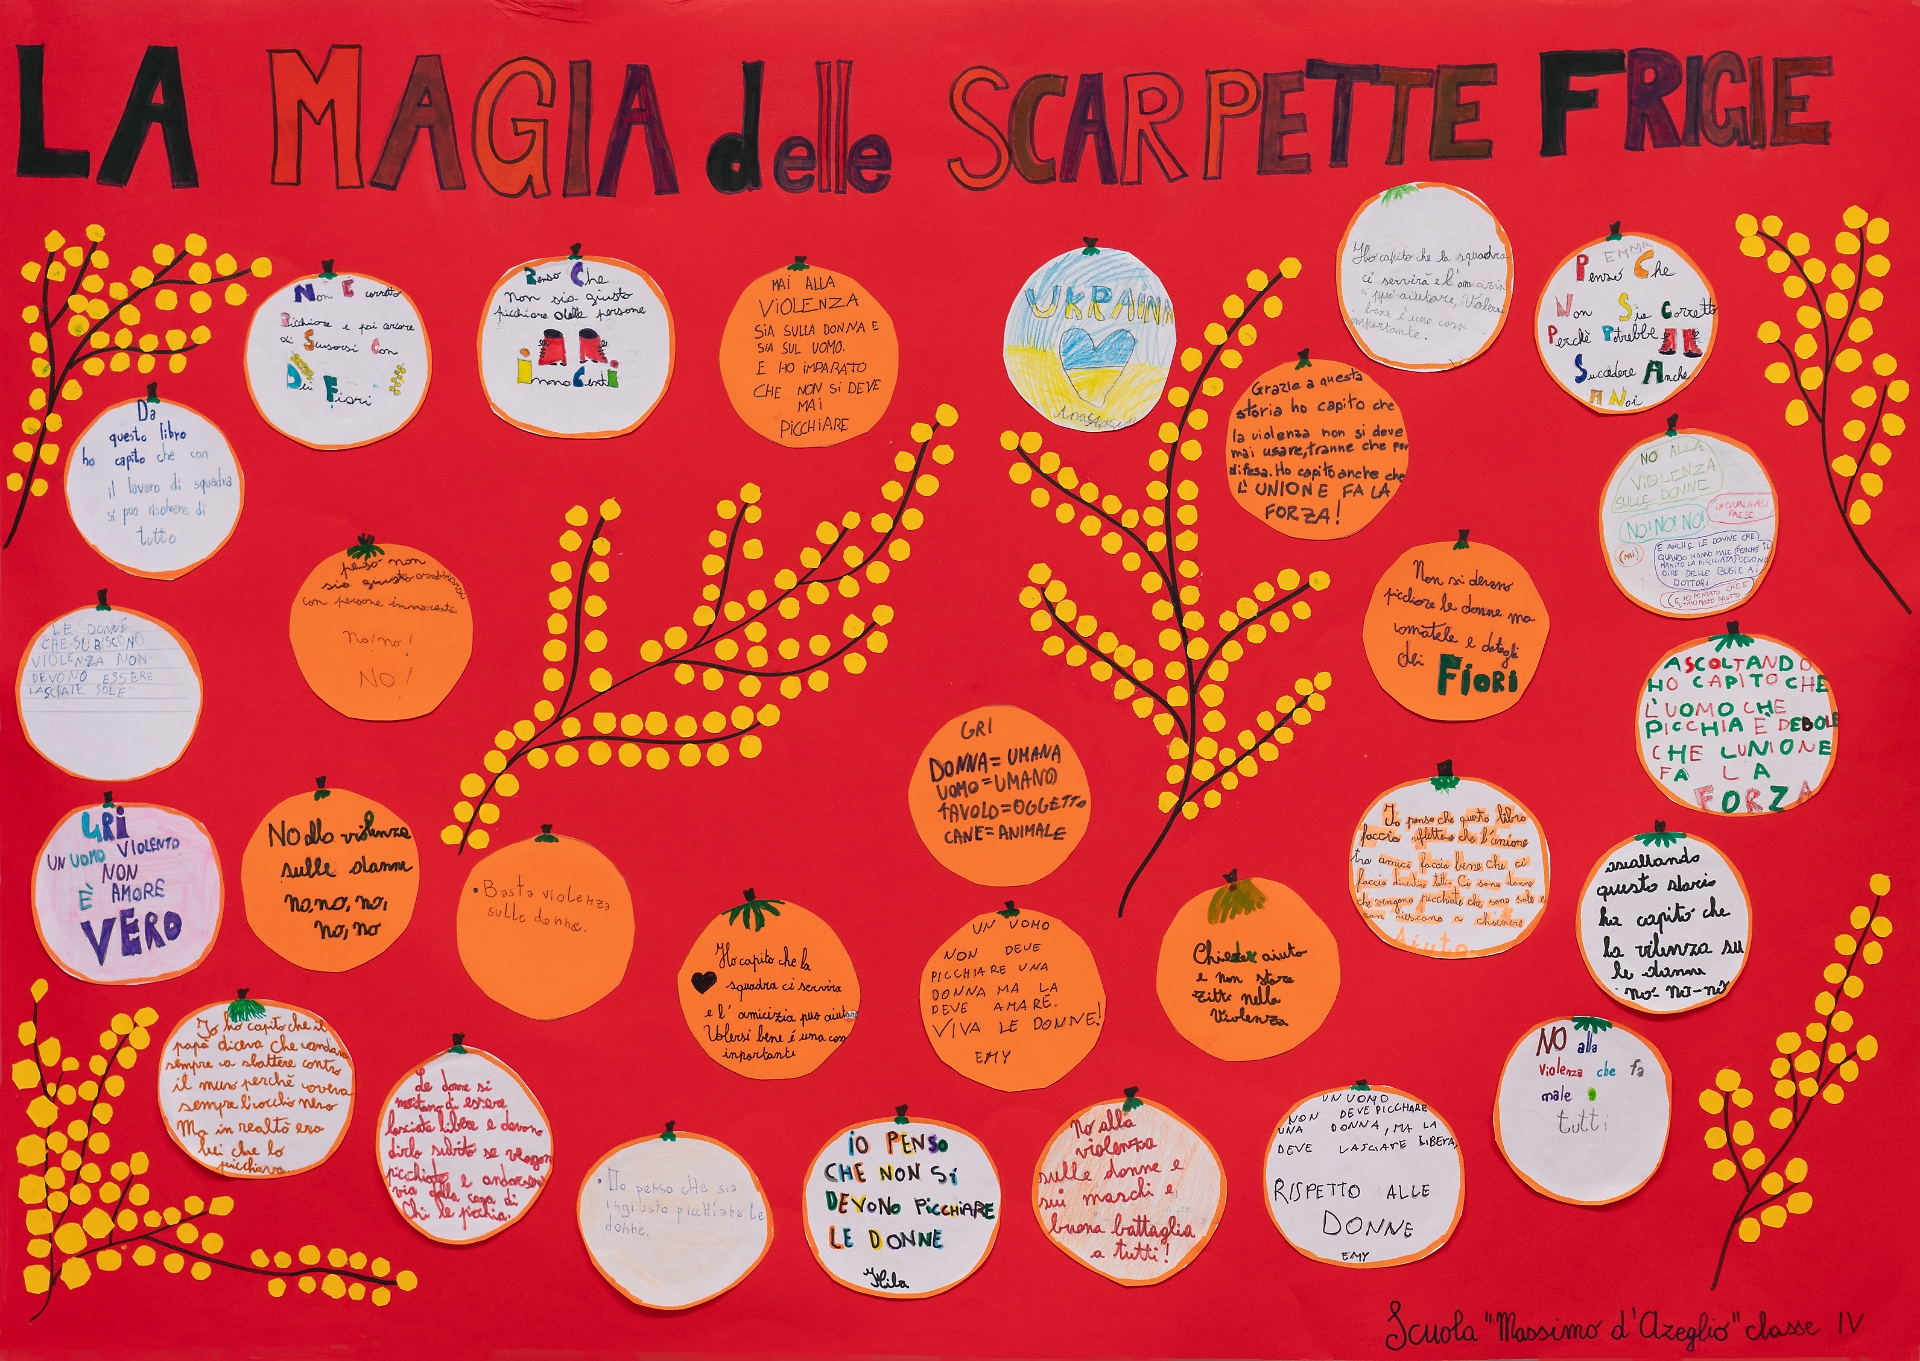 LA MAGIA delle SCARPETTE FRIGIE
NoN È corretto
Picchiare e poi cercare
di Scusarsi Con
Dei Fiori
Penso Che
non sia giusto
picchiare delle persone
innoCenti
MAI ALLA
VIOLENZA
SIA SULLA DONNA E
SIA SUL UOMO.
E HO IMPARATO
CHE NON SI DEVE
MAI
PICCHIARE
UKRAINA
Ho capito che la squadra
ci servirà e l'amicizia
può aiutare, Volersi
bene è una cosa
importante.
EMMA
Penso Che
Non Sia Corretto
Perchè Potrebbe
Succedere Anche
A Noi
Da
questo libro
ho capito che con
il lavoro di squadra
si può risolvere di
tutto
Grazie a questa
storia ho capito che
la violenza non si deve
mai usare, tranne che per
difesa. Ho capito anche che
L'UNIONE FA LA
FORZA!
NO ALLA
VIOLENZA
SULLE DONNE
NO! NO! NO!
IN QUALSIASI
PAESE
(MAI)
E ANCHE LE DONNE CHE
QUANDO HANNO MALE PERCHÈ IL
MARITO LA PICCHIATA DEVONO
DIRE DELLE BUGIE AI
DOTTORI
E HO PENSATO CHE È
STATO MOLTO BRUTTO
penso non
sia giusto
con persone innocenti
No! no!
NO!
Non si devono
picchiare le donne ma
amatele e dategli
dei FIORI
LE DONNE
CHE SUBISCONO
VIOLENZA NON
DEVONO ESSERE
LASCIATE SOLE
ASCOLTANDO
HO CAPITO CHE
L'UOMO CHE
PICCHIA È DEBOLE
CHE LUNIONE
FA LA
FORZA
GRI
DONNA=UMANA
UOMO=UMANO
TAVOLO=OGGETTO
CANE=ANIMALE
GRI
UN UOMO VIOLENTO
NON
È AMORE
VERO
NO alla violenza
sulle donne
no, no, no,
no, no
• Basta violenza
sulle donne.
Io penso che questo libro
faccia riflettere che l'unione
tra amici faccia bene che ci
faccia diventare tutti. Ci sono donne
che vengono picchiate che sono sole e
non riescono a chiedere
Aiuto
ascoltando
questo storia
ho capito che
la vilenza su
le donne
no-no-no
Ho capito che la
squadra ci servira
e l'amicizia può aiutare
Volersi bene é una cosa
importante
UN UOMO
NON DEVE
PICCHIARE UNA
DONNA MA LA
DEVE AMARE.
VIVA LE DONNE!
EMY
Chieder aiuto
e non stare
zitti nella
Violenza
Io ho capito che il
papà diceva che andava
sempre a sbattere contro
il muro perchè aveva
sempre l'occhio nero
Ma in realtà era
lui che lo
picchiava
Le donne si
meritano di essere
lasciate libere e devono
dirlo subito se vengon
picchiate e andarsene
via dalla casa di
Chi le picchia.
• Io penso che sia
ingiusto picchiare le
donne.
iO PENSO
CHE NON Si
DEVONO PICCHIARE
LE DONNE
Mila
No alla
violenza
sulle donne e
sui maschi e
buona battaglia
a tutti!
UN UOMO
NON DEVE PICCHIARE
UNA DONNA, MA LA
DEVE LASCIATE LIBERA,
RISPETTO ALLE
DONNE
EMY
NO alla
violenza che fa
male a
tutti
Scuola "Massimo d'Azeglio" classe IV